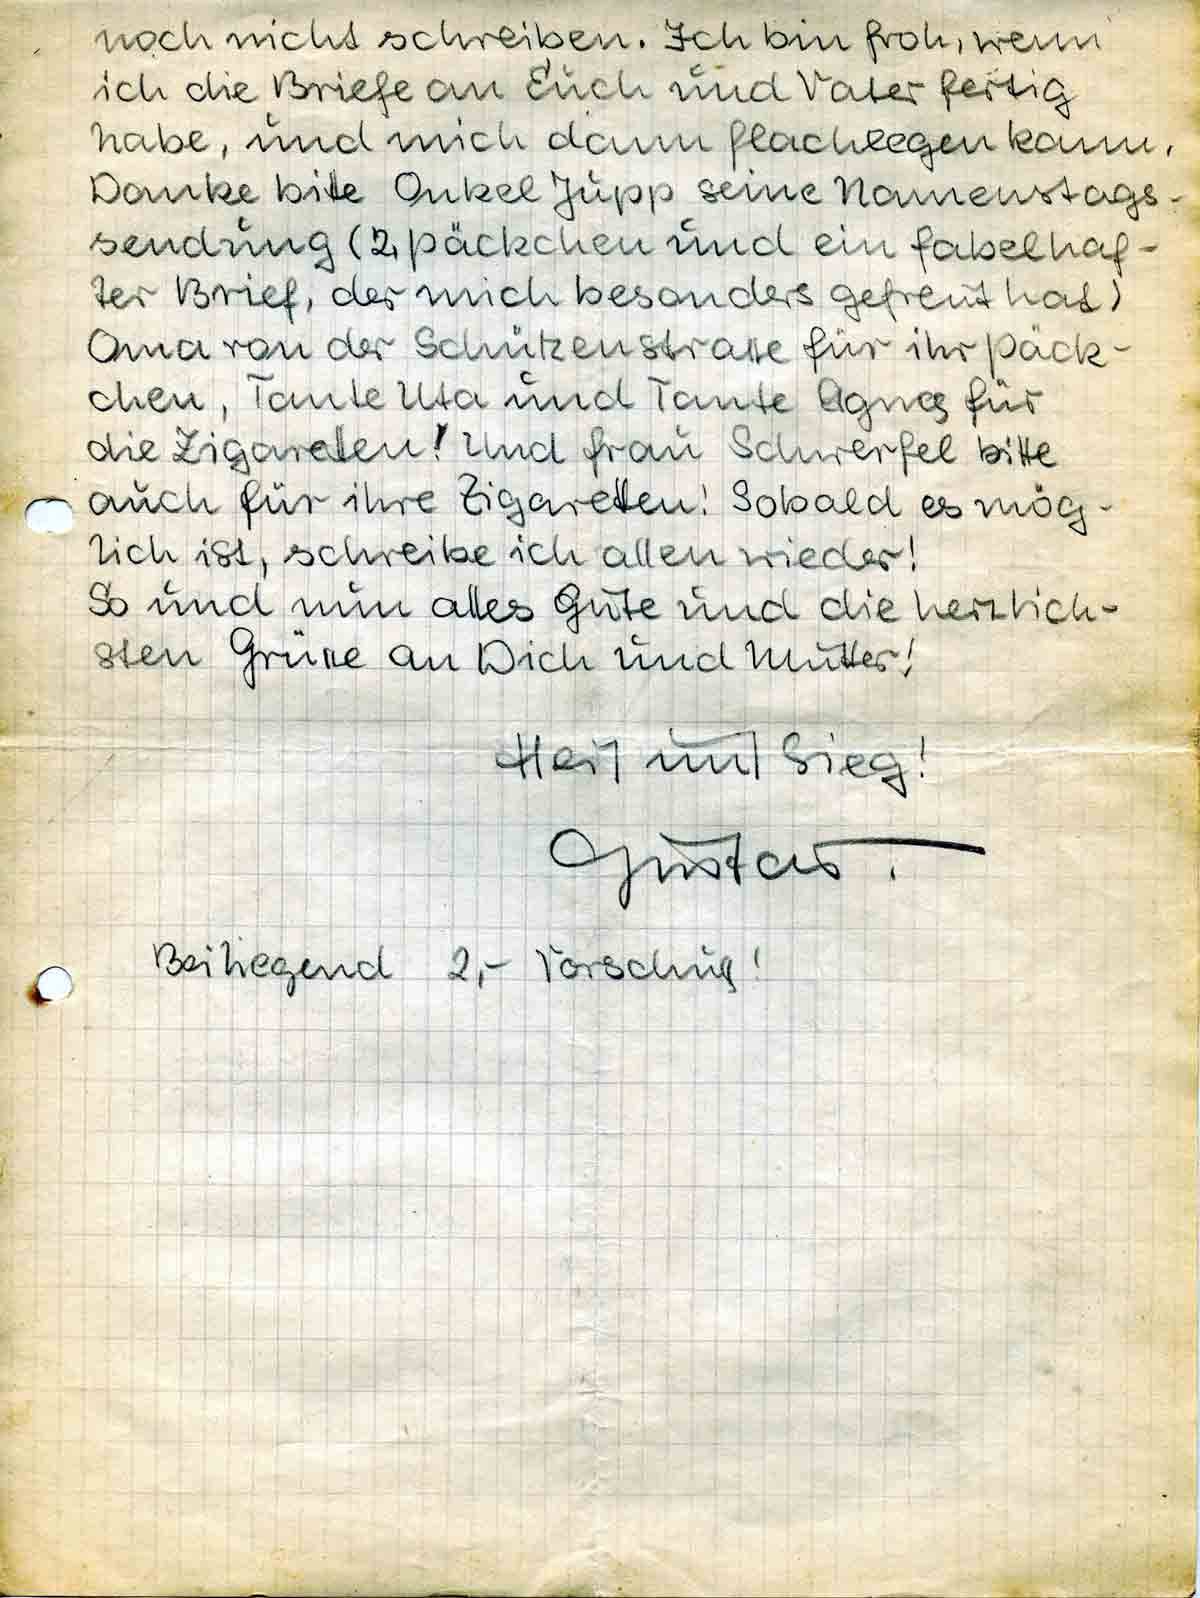 noch nicht schreiben. Ich bin froh, wenn
ich die Briefe an Euch und Vater fertig
habe, und mich dann flachlegen kann.
Danke bitte Onkel Jupp seine Namenstags-
sendung (2 päckchen und ein fabelhaf-
ter Brief, der mich besonders gefreut hat)
Oma von der Schützenstraße für ihr päck-
chen, Tante Uta und Tante Agnes für
die Zigaretten! Und frau Schwerfel bitte
auch für ihre Zigaretten! Sobald es mög-
lich ist, schreibe ich allen wieder!
So und nun alles Gute und die herzlich-
sten Grüße an Dich und Mutter!
Heil und Sieg!
Gustav.
Beiliegend 2,- Vorschuß!